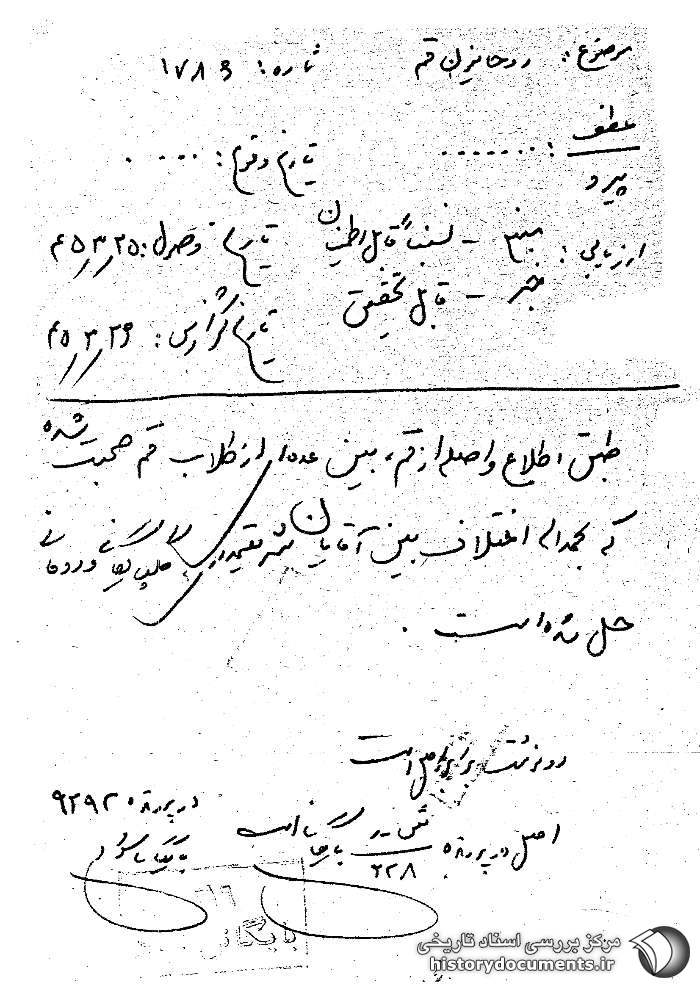 موضوع: روحانیون قم
شماره: ۱۷۸۶
عطف
پیرو : ........
تاریخ وقوع: ....
ارزیابی: منبع - نسبتاً قابل اطمینان
خبر - قابل تحقیق
تاریخ وصول: ۴۵/۳/۲۵
تاریخ گزارش: ۴۵/۳/۲۶
طبق اطلاع واصله از قم، بین عده‌ای از طلاب قم صحبت شده
که بحمدالله اختلاف بین آقایان شریعتمداری گلپایگانی و روحانی
حل شده است.
رونوشت برابر اصل است
اصل در پرونده ۶۲۸ بایگانی است
در پرونده ۹۲۹۲
بایگانی شود
۱۶
بایگانی
مرکز بررسی اسناد تاریخی
historydocuments.ir